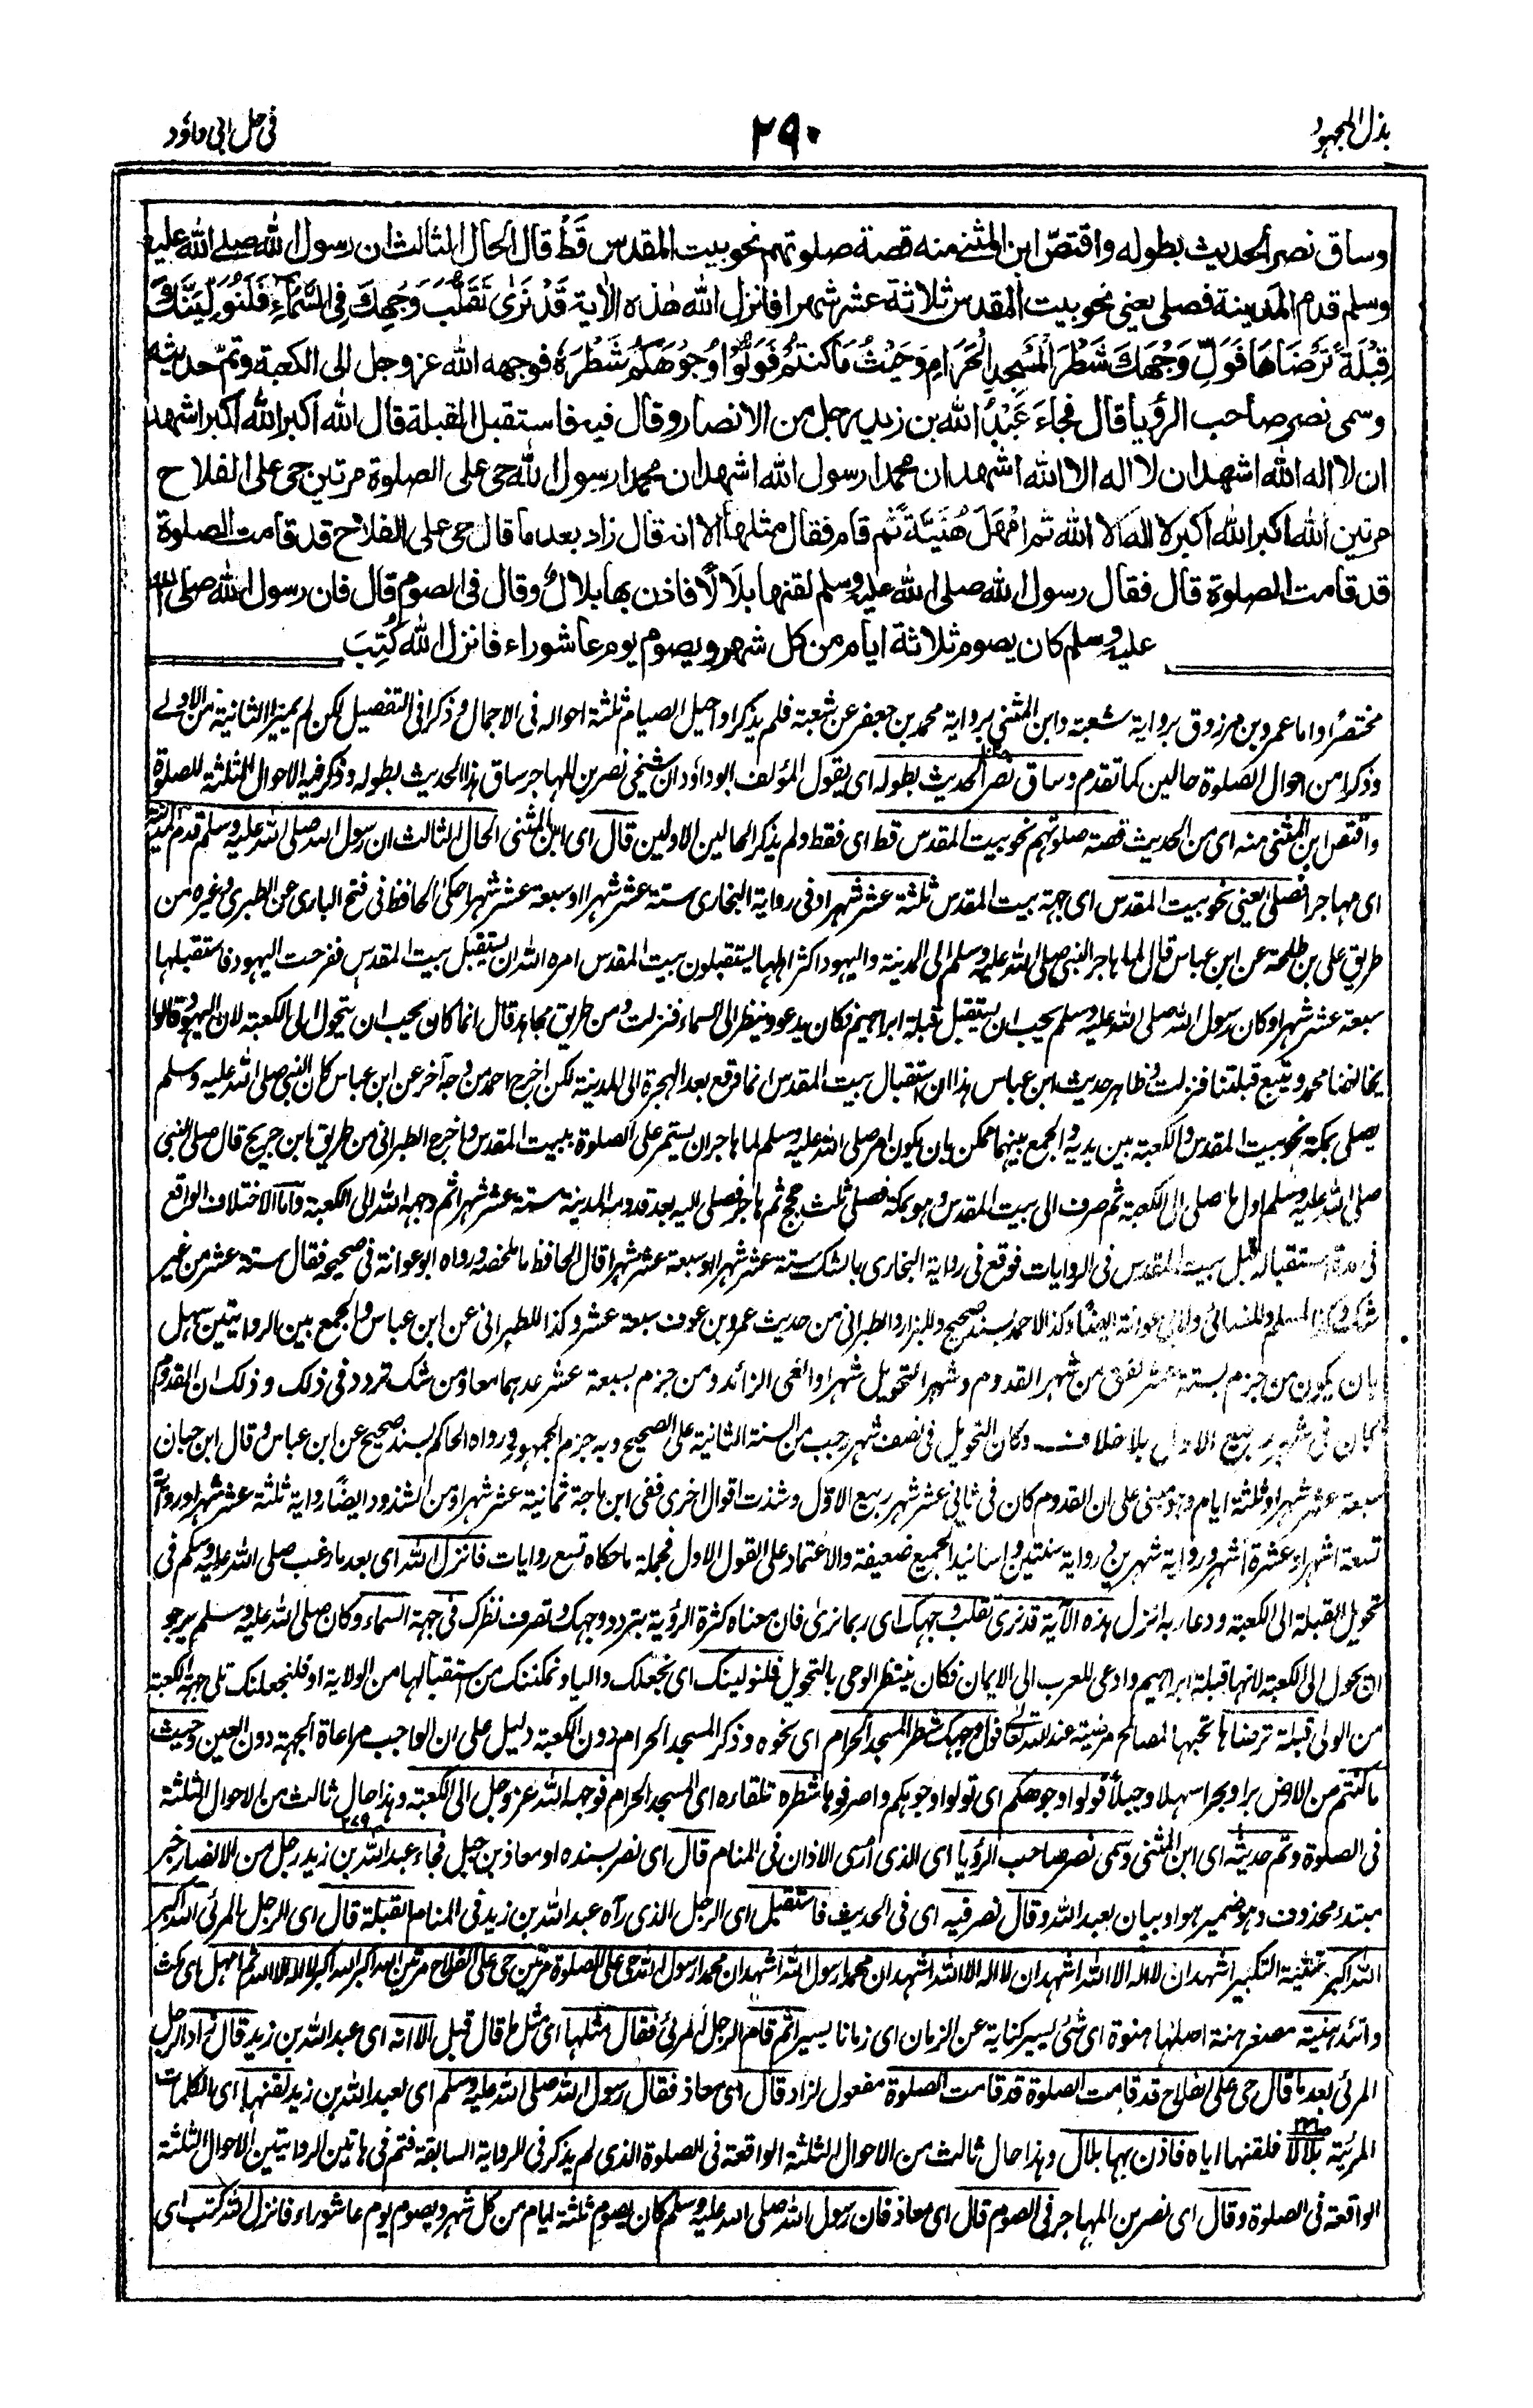 بذل المجهود
٢٩٠
فی حل ابی داؤد
وساق نصر الحديث بطوله واقتصّ ابن المثنى منه قصة صلوتهم نحو بيت المقدس قَطُّ قال الحال الثالث ان رسول الله صلے الله عليه
وسلم قدم المدينة فصلى يعنى نحو بيت المقدس ثلاثة عشر شهرا فانزل الله هذه الأية قَدْ نَرٰى تَقَلُّبَ وَجْهِكَ فِى السَّمَآءِ فَلَنُوَلِّيَنَّكَ
قِبْلَةً تَرْضَاهَا فَوَلِّ وَجْهَكَ شَطْرَ الْمَسْجِدِ الْحَرَامِ وَحَيْثُ مَا كُنْتُمْ فَوَلُّوْا وُجُوْهَكُمْ شَطْرَهٗ فوجهه الله عز وجل الى الكعبة وتمّ حديثه
وسمى نصر صاحب الرؤيا قال فجاءَ عَبْدُ الله بن زيد رجل من الانصار وقال فيه فاستقبل القبلة قال الله اكبر الله اكبر اشهد
ان لا اله الا الله اشهد ان لا اله الا الله اشهد ان محمدا رسول الله اشهد ان محمدا رسول الله حى على الصلوة مرتين حى على الفلاح
مرتين الله اكبر الله اكبر لا اله الا الله ثم امْهَلَ هُنَيَّةً ثم قام فقال مثلها الا انه قال زاد بعد ما قال حى على الفلاح قد قامت الصلوة
قد قامت الصلوة قال فقال رسول الله صلى الله عليه وسلم لقنها بلالًا فاذن بها بلالٌ وقال فى الصوم قال فان رسول الله صلى الله
عليه وسلم كان يصوم ثلاثة ايام من كل شهر ويصوم يوم عاشوراء فانزل الله كُتِبَ
مختصرًا واما عمرو بن مرزوق برواية شعبة وابن المثنى برواية محمد بن جعفر عن شعبة فلم يذكرا واحيل الصيام ثلثة احواله فى الاجمال وذكرا فى التفصيل لكن لم يميزا الثانية من الاولے
وذكرا من احوال الصلوة حالين كما تقدم وساق نصر الحديث بطوله اى يقول المؤلف ابو داؤد ان شيخى نصر بن المهاجر ساق هذا الحديث بطوله وذكر فيه الاحوال الثلثة للصلوة
واقتص ابن المثنى منه اى من الحديث قصة صلوتهم نحو بيت المقدس قط اى فقط ولم يذكر الحالين الاولين قال اى ابن المثنى الحال الثالث ان رسول الله صلى الله عليه وسلم قدم المدينة
اى مهاجرا فصلى يعنى نحو بيت المقدس اى جهة بيت المقدس ثلثة عشر شهرا وفى رواية البخارى ستة عشر شهرا او سبعة عشر شهرا حكى الحافظ فى فتح البارى عن الطبرى وغيره من
طريق على بن طلحة عن ابن عباس قال لما هاجر النبى صلى الله عليه وسلم الى المدينة واليهود اكثر اهلها يستقبلون بيت المقدس امره الله ان يستقبل بيت المقدس ففرحت اليهود فاستقبلها
سبعة عشر شهرا وكان رسول الله صلى الله عليه وسلم يحب ان يستقبل قبلة ابراهيم فكان يدعو وينظر الى السماء فنزلت ومن طريق مجاهد قال انما كان يحب ان يتحول الى الكعبة لان اليهود قالوا
يخالفنا محمد ويتبع قبلتنا فنزلت وظاهر حديث ابن عباس هذا ان استقبال بيت المقدس انما وقع بعد الهجرة الى المدينة لكن اخرج احمد من وجه آخر عن ابن عباس كان النبى صلى الله عليه وسلم
يصلى بمكة نحو بيت المقدس والكعبة بين يديه والجمع بينهما ممكن بان يكون امر صلى الله عليه وسلم لما هاجر ان يستمر على الصلوة ببيت المقدس واخرج الطبرانى من طريق ابن جريج قال صلى النبى
صلى الله عليه وسلم اول ما صلى الى الكعبة ثم صرف الى بيت المقدس وهو بمكة فصلى ثلث حجج ثم هاجر فصلى اليه بعد قدومه المدينة ستة عشر شهرا ثم وجهه الله الى الكعبة واما الاختلاف الواقع
فى مدة استقباله قبل بيت المقدس فى الروايات فوقع فى رواية البخارى بالشك ستة عشر شهرا او سبعة عشر شهرا قال الحافظ ما ملخصه ورواه ابو عوانة فى صحيحه فقال ستة عشر من غير
شك وكذا لمسلم وللنسائى ولابى عوانة ايضًا وكذا لاحمد بسند صحيح وللبزار والطبرانى من حديث عمرو بن عوف سبعة عشر وكذا للطبرانى عن ابن عباس والجمع بين الروايتين سهل
بان يكون من جزم بستة عشر لفق من شهر القدوم وشهر التحويل شهرا والغى الزائد ومن جزم بسبعة عشر عدهما معا ومن شك تردد فى ذلك وذلك ان القدوم
كان فى شهر ربيع الاول بلا خلاف وكان التحويل فى نصف شهر رجب من السنة الثانية على الصحيح وبه جزم الجمهور ورواه الحاكم بسند صحيح عن ابن عباس وقال ابن حبان
سبعة عشر شهرا وثلثة ايام وهو مبنى على ان القدوم كان فى ثانى عشر شهر ربيع الاول وشذت اقوال اخرى ففى ابن ماجة ثمانية عشر شهرا ومن الشذوذ ايضًا رواية ثلثة عشر شهرا ورواية
تسعة اشهر او عشرة اشهر ورواية شهرين و رواية سنتين واسانيد الجميع ضعيفة والاعتماد على القول الاول فجملة ما حكاه تسع روايات فانزل الله اى بعد ما رغب صلى الله عليه وسلم فى
تحويل القبلة الى الكعبة ودعا ربه انزل هذه الآية قد نرى تقلب وجهك اى ربما نرى فان معناه كثرة الرؤية بتردد وجهك وتصرف نظرك فى جهة السماء وكان صلى الله عليه وسلم يرجو
ان يحول الى الكعبة لانها قبلة ابراهيم وادعى للعرب الى الايمان فكان ينتظر الوحى بالتحويل فلنولينك اى نجعلك واليا ونمكننك من استقبالها من الولاية او فلنجعلنك تلى جهة الكعبة
من الولى قبلة ترضاها تحبها لمصالح مرضية عند الله تعالى فول وجهك شطر المسجد الحرام اى نحوه وذكر المسجد الحرام دون الكعبة دليل على ان الواجب مراعاة الجهة دون العين وحيث
ما كنتم من الارض برا وبحرا سهلا وجبلا فولوا وجوهكم اى تولوا وجوهكم واصرفوها شطره تلقاءه اى المسجد الحرام فوجهه الله عز وجل الى الكعبة وهذا حال ثالث من الاحوال الثلثة
فى الصلوة وتم حديثه اى ابن المثنى وسمى نصر صاحب الرؤيا اى الذى ارى الاذان فى المنام قال اى نصر بسنده او معاذ بن جبل فجاء عبد الله بن زيد رجل من الانصار خبر
مبتدء محذوف وهو ضمير هو او بيان لعبد الله وقال نصر فيه اى فى الحديث فاستقبل اى الرجل الذى رآه عبد الله بن زيد فى المنام القبلة قال اى الرجل المرئى الله اكبر
الله اكبر بتثنية التكبير اشهد ان لا اله الا الله اشهد ان لا اله الا الله اشهد ان محمدا رسول الله اشهد ان محمدا رسول الله حى على الصلوة مرتين حى على الفلاح مرتين الله اكبر الله اكبر لا اله الا الله ثم امهل اى مكث
واتئد هنية مصغر هنة اصلها هنوة اى شئ يسير كناية عن الزمان اى زمانا يسيرا ثم قام الرجل المرئى فقال مثلها اى مثل ما قال قبل الا انه اى عبد الله بن زيد قال زاد الرجل
المرئى بعد ما قال حى على الفلاح قد قامت الصلوة قد قامت الصلوة مفعول لزاد قال اى معاذ فقال رسول الله صلى الله عليه وسلم اى لعبد الله بن زيد لقنها اى الكلمات
المرئية بلالا فلقنها اياه فاذن بها بلال وهذا حال ثالث من الاحوال الثلثة الواقعة فى الصلوة الذى لم يذكر فى الرواية السابقة فتم فى هاتين الروايتين الاحوال الثلثة
الواقعة فى الصلوة وقال اى نصر بن المهاجر فى الصوم قال اى معاذ فان رسول الله صلى الله عليه وسلم كان يصوم ثلثة ايام من كل شهر ويصوم يوم عاشوراء فانزل الله كتب اى